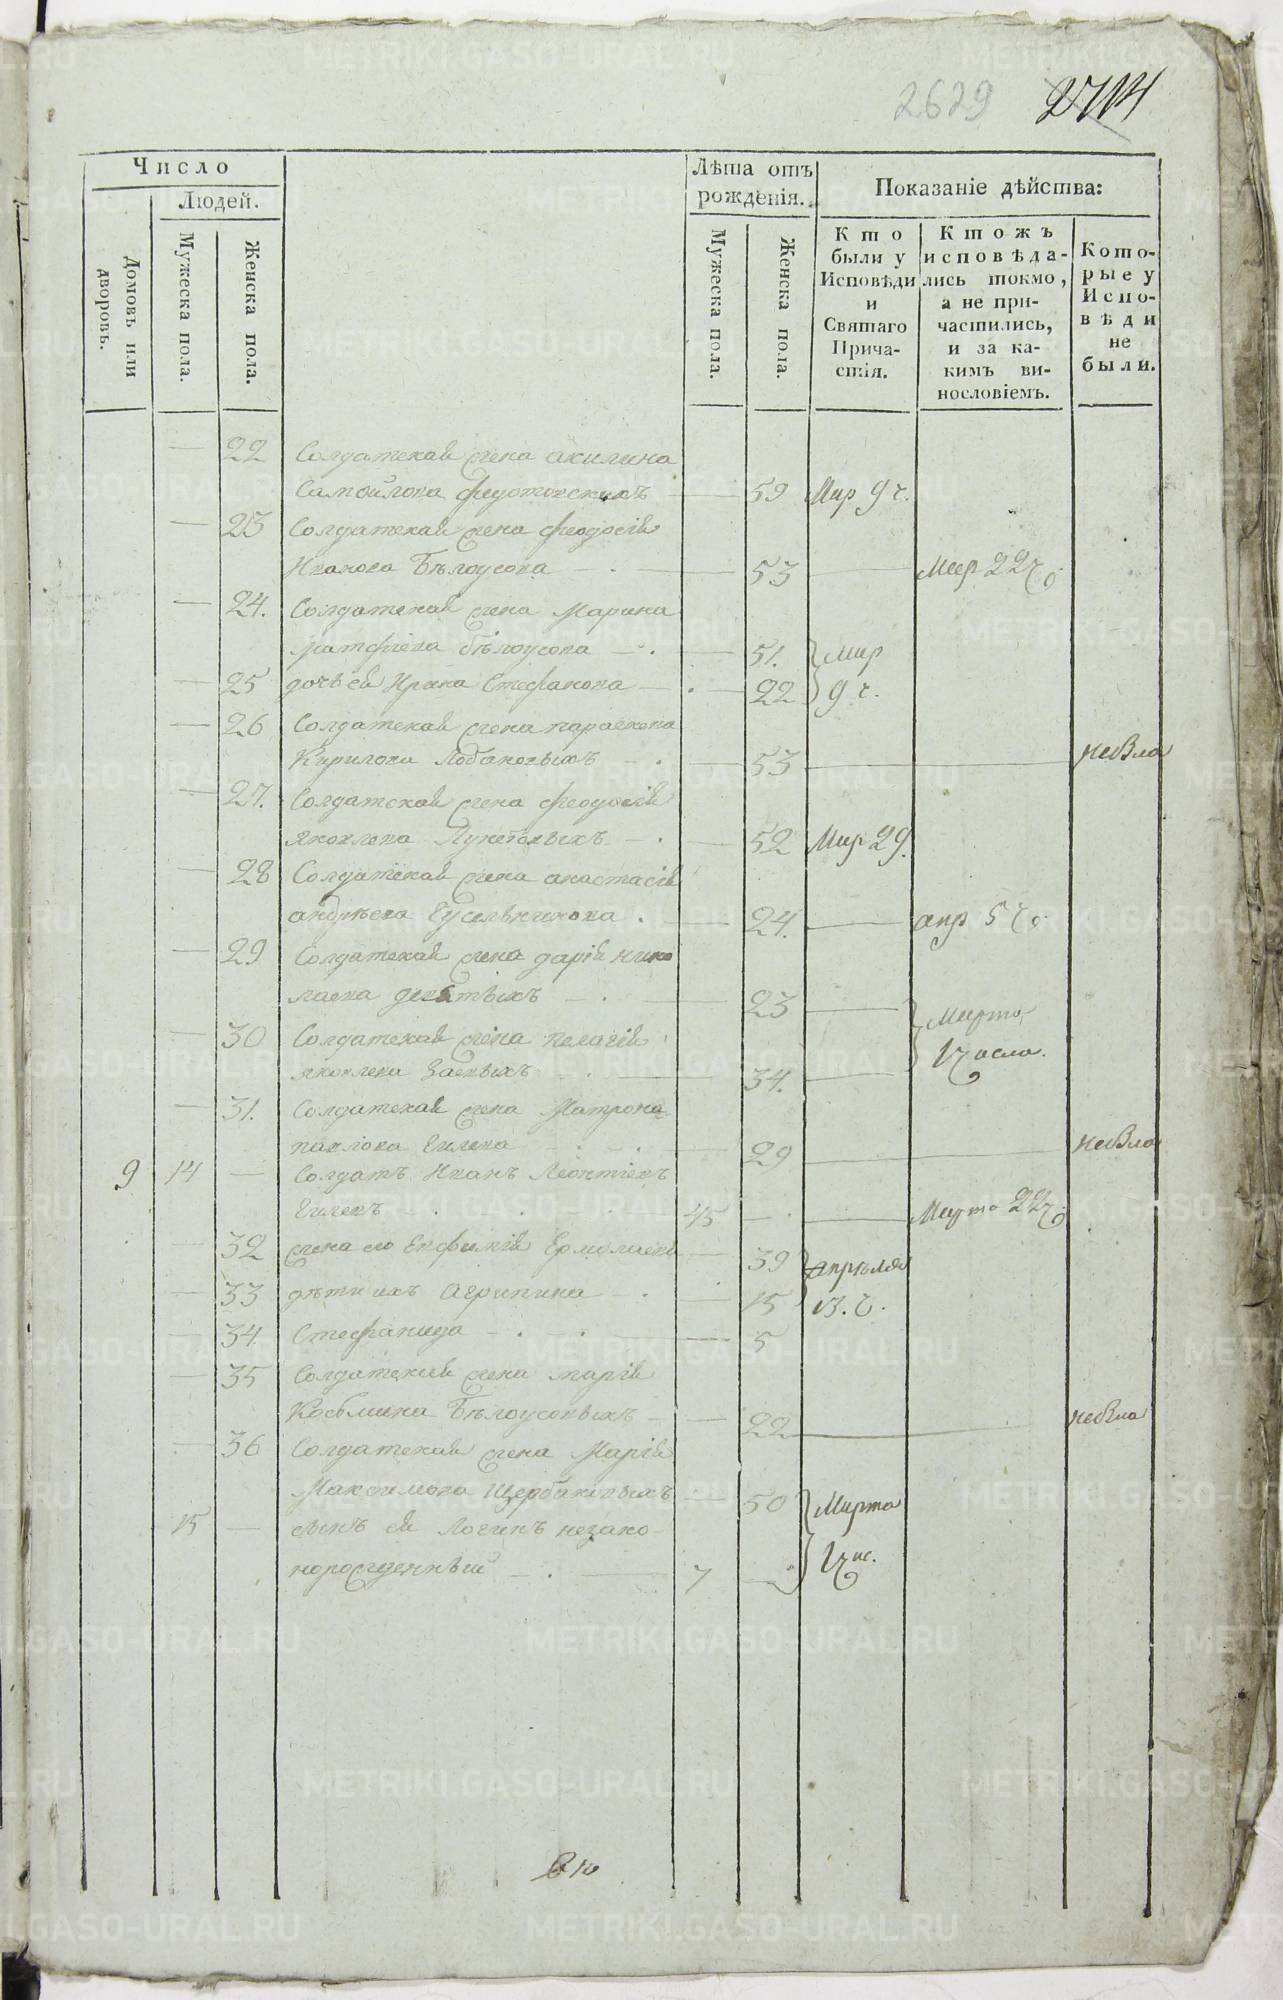 2629 2714
Число
Людей.
Домовъ или дворовъ.
Мужеска пола.
Женска пола.
Лѣта отъ рожденія.
Мужеска пола.
Женска пола.
Показаніе дѣйства:
Кто были у Исповѣди и Святаго Причастія.
Ктожъ исповѣдались токмо, а не причастились, и за какимъ винословіемъ.
Которые у Исповѣди не были.
— 22 Солдатская жена акилина
Самойлова федотовскихъ — 59 Мар 9 ч.
— 23 Солдатская жена феодосія
Иванова Бѣлоусова — 53 — Мар 22 ч
— 24. Солдатская жена Марина
матфіева бѣлоусова — 51. Мар
— 25 дочь ея Ирина Стефанова — 22 9 ч.
— 26 Солдатская жена параскева
Кирилова Лобановыхъ — 53 — небыла
— 27. Солдатская жена феодосія
яковлева — 52 Мар 29.
— 28 Солдатская жена анастасія
андрѣева Гусельникова — 24. — апр 5 ч
— 29 Солдатская жена дарія нико
лаева девятыхъ — 23 — Марта
— 30 Солдатская жена пелагія
яковлева Заевыхъ — 34. — числа.
— 31. Солдатская жена Матрона
павлова Гилева — 29 — небыла
9 14 — Солдатъ Иванъ Леонтіевъ
Гилевъ — 45 — Марта 22 ч
— 32 жена ево Евфимія Ермолаева — 39 апрѣля
— 33 дѣти ихъ Агрипина — 15 13. ч.
— 34. Стефанида — 5
— 35 Солдатская жена марія
Козьмина Бѣлоусовыхъ — 22 — небыла
— 36 Солдатская жена Марія
Максимова Щербаковыхъ — 50 Марта
15 — сынъ ея Логинъ незако-
норожденный — 7 — чис.